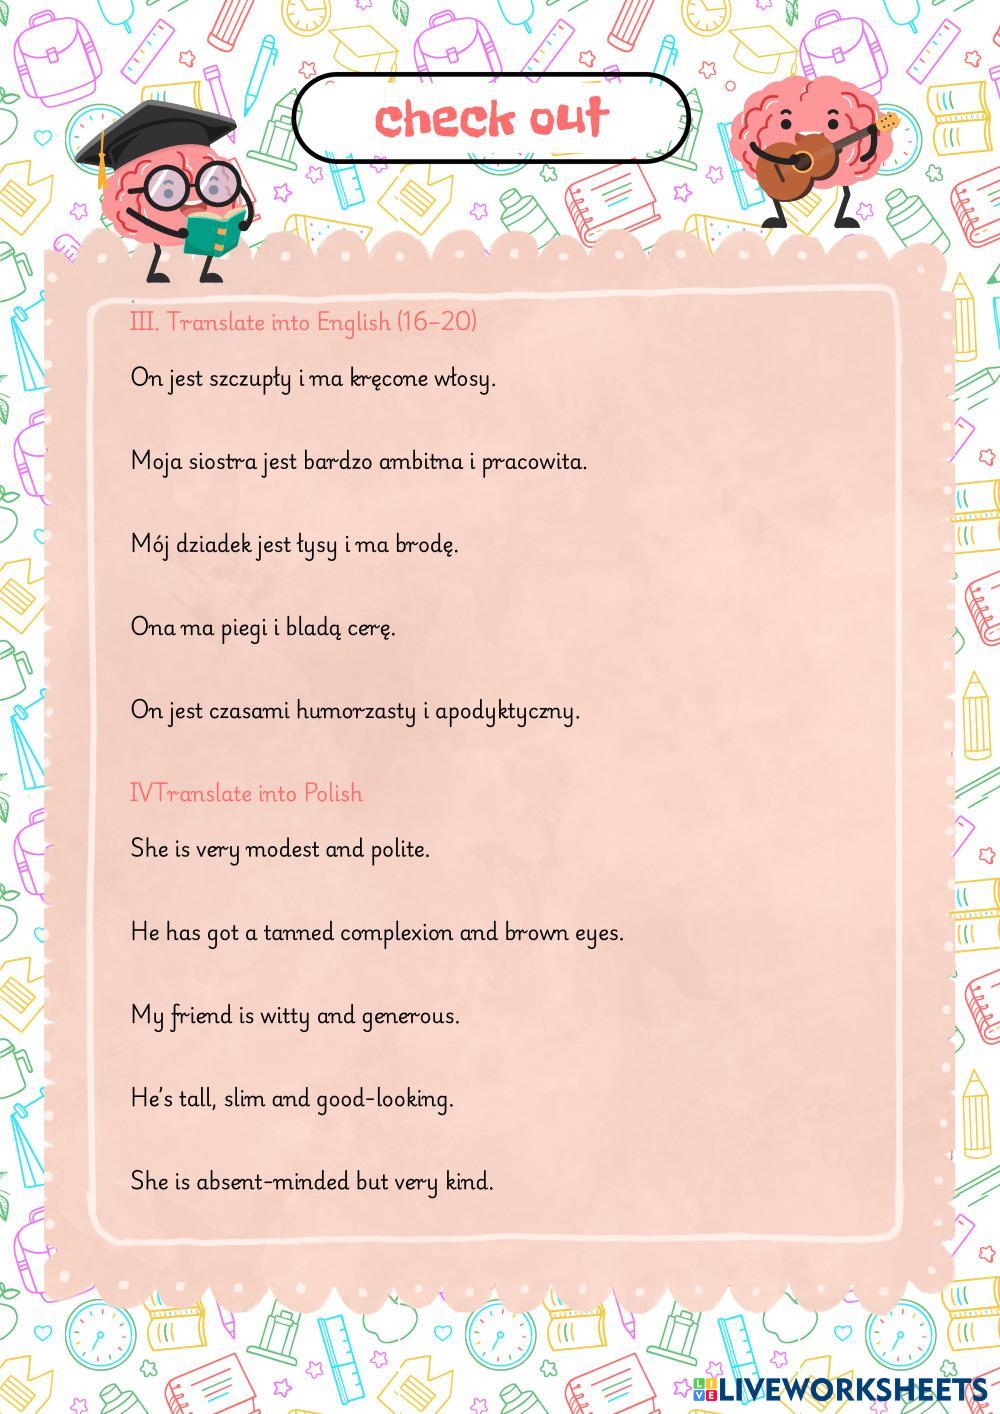 check out
III. Translate into English (16-20)
On jest szczupły i ma kręcone włosy.
Moja siostra jest bardzo ambitna i pracowita.
Mój dziadek jest łysy i ma brodę.
Ona ma piegi i bladą cerę.
On jest czasami humorzasty i apodyktyczny.
IVTranslate into Polish
She is very modest and polite.
He has got a tanned complexion and brown eyes.
My friend is witty and generous.
He's tall, slim and good-looking.
She is absent-minded but very kind.
LIVE LIVEWORKSHEETS